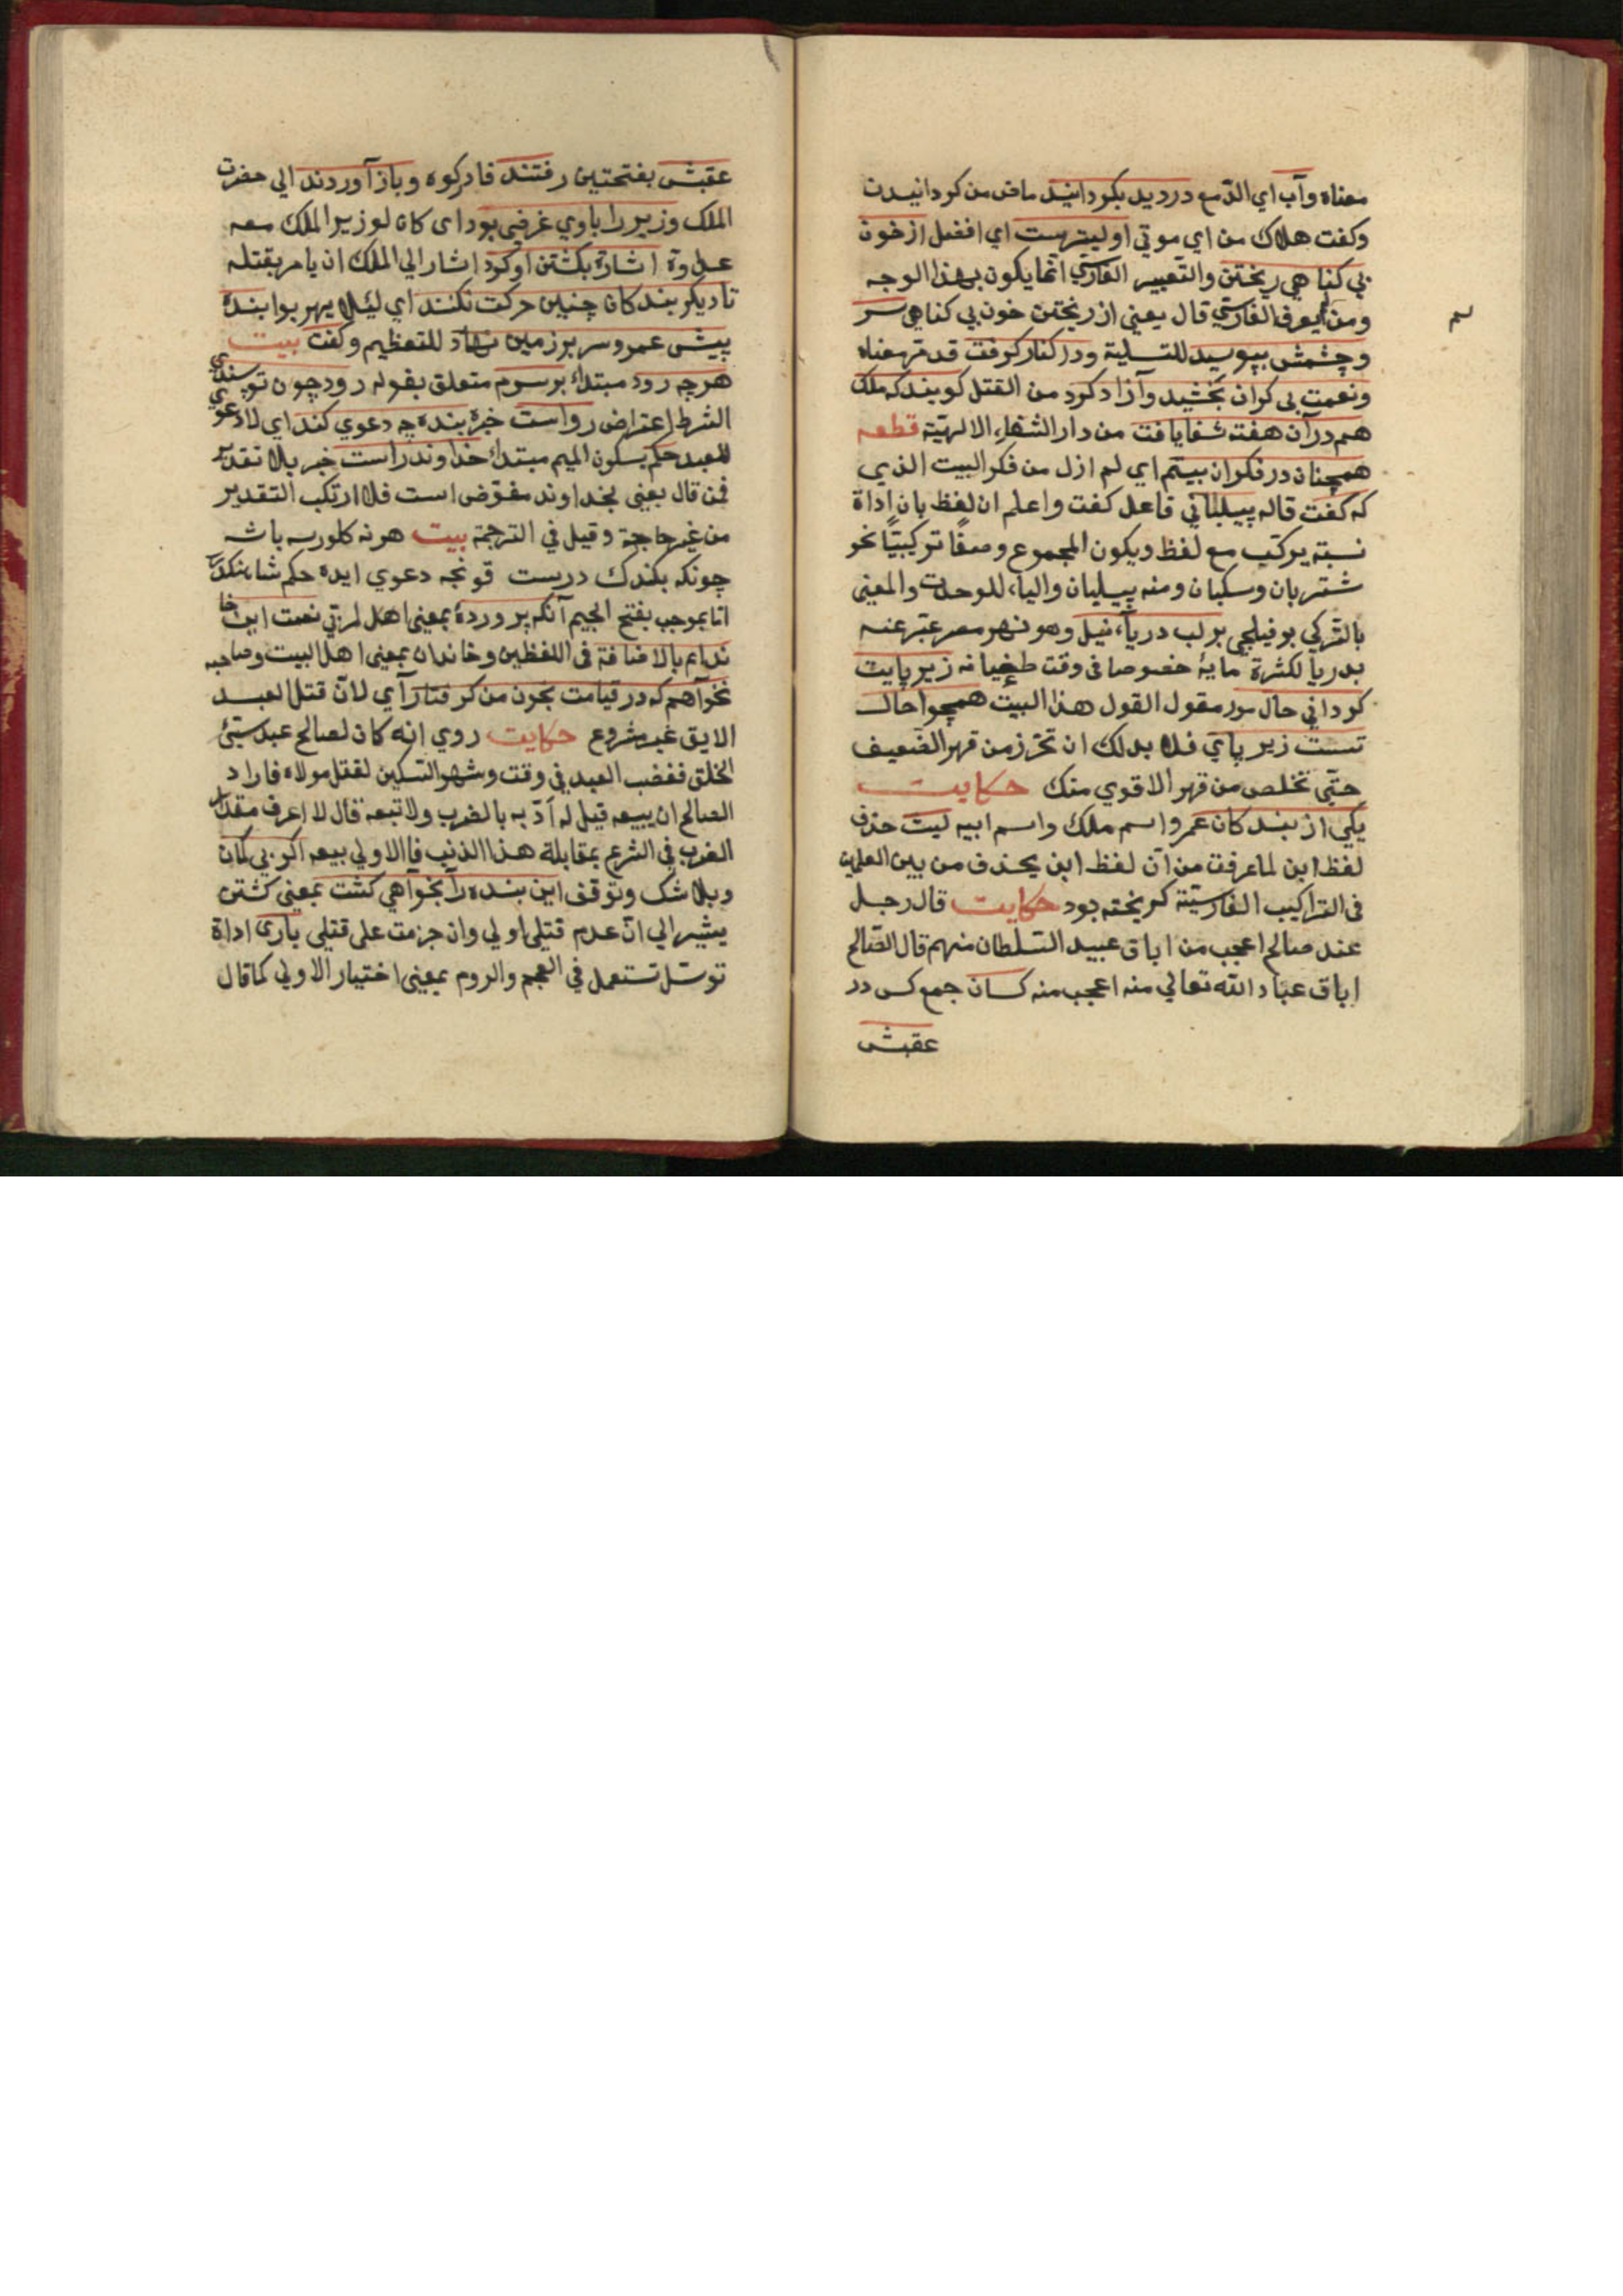 معناه وآب اي الدّمع در ديد بكردانيد ماض من كردانيدن
وكفت هلاك من اي موتي اوليترست اي افضل از خون
بي كناهي ريختن والتّعبير الفارسيّ انّما يكون بهذا الوجه
ومن لم يعرف الفارسيّ قال يعني از ريختن خون بي كناهي سر
وچشمش ببوسيد للتسلية ودر كنار كرفت قد مرّ معناه
ونعمت بي كران بخشيد وآزاد كرد من القتل كويند كه ملك
هم در آن هفته شفا يافت من دار الشفاء الالهيّة قطعه
همچنان در فكر آن بيتم اي لم ازل من فكر البيت الذي
كه كفت قاله پيلباني فاعل كفت واعلم ان لفظ بان اداة
نسبة يركّب مع لفظ ويكون المجموع وصفًا تركيبيّا نحو
شتربان وسكبان ومنه پيلبان والياء للوحدت والمعنى
بالتّركي بر فيلجي بر لب درياء نيل وهو نهر مصر عبّر عنه
بدريا لكثرة مايهٔ خصوصا في وقت طغيانه زير پايت
كر داني حال مور مقول القول هذا البيت همچو احال
تست زير پاي فلا بد لك ان تحرّز من قهر الضّعيف
حتّى تخلص من قهر الاقوي منك حكايت
يكي از بندكان عمرو اسم ملك واسم ابيه ليث حذف
لفظ ابن لما عرفت من انّ لفظ ابن يحذف من بين العلمين
في التراكيب الفارسيّة كريخته بود حكايت قال رجل
عند صالح اعجب من اباق عبيد السّلطان منهم قال الصّالح
اباق عباد الله تعالي منه اعجب منه كسان جمع كس در
عقبش
عقبش بفتحتين رفتند فادركوه وباز آوردند الي حضرت
الملك وزير را باوي غرضي بود اي كان لوزير الملك معه
عداوة اشارة بكشتن او كرد اشار الي الملك ان يامر بقتله
تا ديكر بندكان چنين حركت نكنند اي لئلا يهربوا بنده
پيش عمرو سر بر زمين نهاد للتعظيم وكفت بيت
هرچه رود مبتدأ بر سرم متعلق بقوله رود چون تو پسندي
الشرط اعتراض رواست خبره بنده چه دعوي كند اي لا دعوي
للعبد حكم بسكون الميم مبتدأ خداوند راست خبر بلا تقدير
فمن قال يعني بخداوند مفوّض است فلا ارتكب التقدير
من غير حاجة وقيل في الترجمة بيت هر نه كلورسه باشه
چونكه بكندك درست قونجه دعوي ايده حكم شاهنكدر
امّا بموجب بفتح الجيم آنكه پروردهٔ بمعنى اهل لمرتي نعمت اين خا
ندانم بالاضافة في اللفظين وخاندان بمعنى اهل البيت وصاحبه
نخواهم كه در قيامت بخون من كرفتار آي لانّ قتل العبد
الابق غير مشروع حكايت روي انه كان لصالح عبد سيّئ
الخلق فغضب العبد في وقت وشهر السّكين لقتل مولاه فاراد
الصالح ان يبيعه قيل له ادّبه بالضرب ولا تبعه قال لا اعرف مقدار
الضرب في الشرع بمقابلة هذا الذنب فاالاولي بيعه اكر بي كمان
وبلا شك وتوقف اين بنده را بخواهي كشت بمعنى كشتن
يشير الي انّ عدم قتلي اولي وان جزمت على قتلي باري اداة
توسّل تستعمل في العجم والروم بمعنى اختيار الاولي كما قال